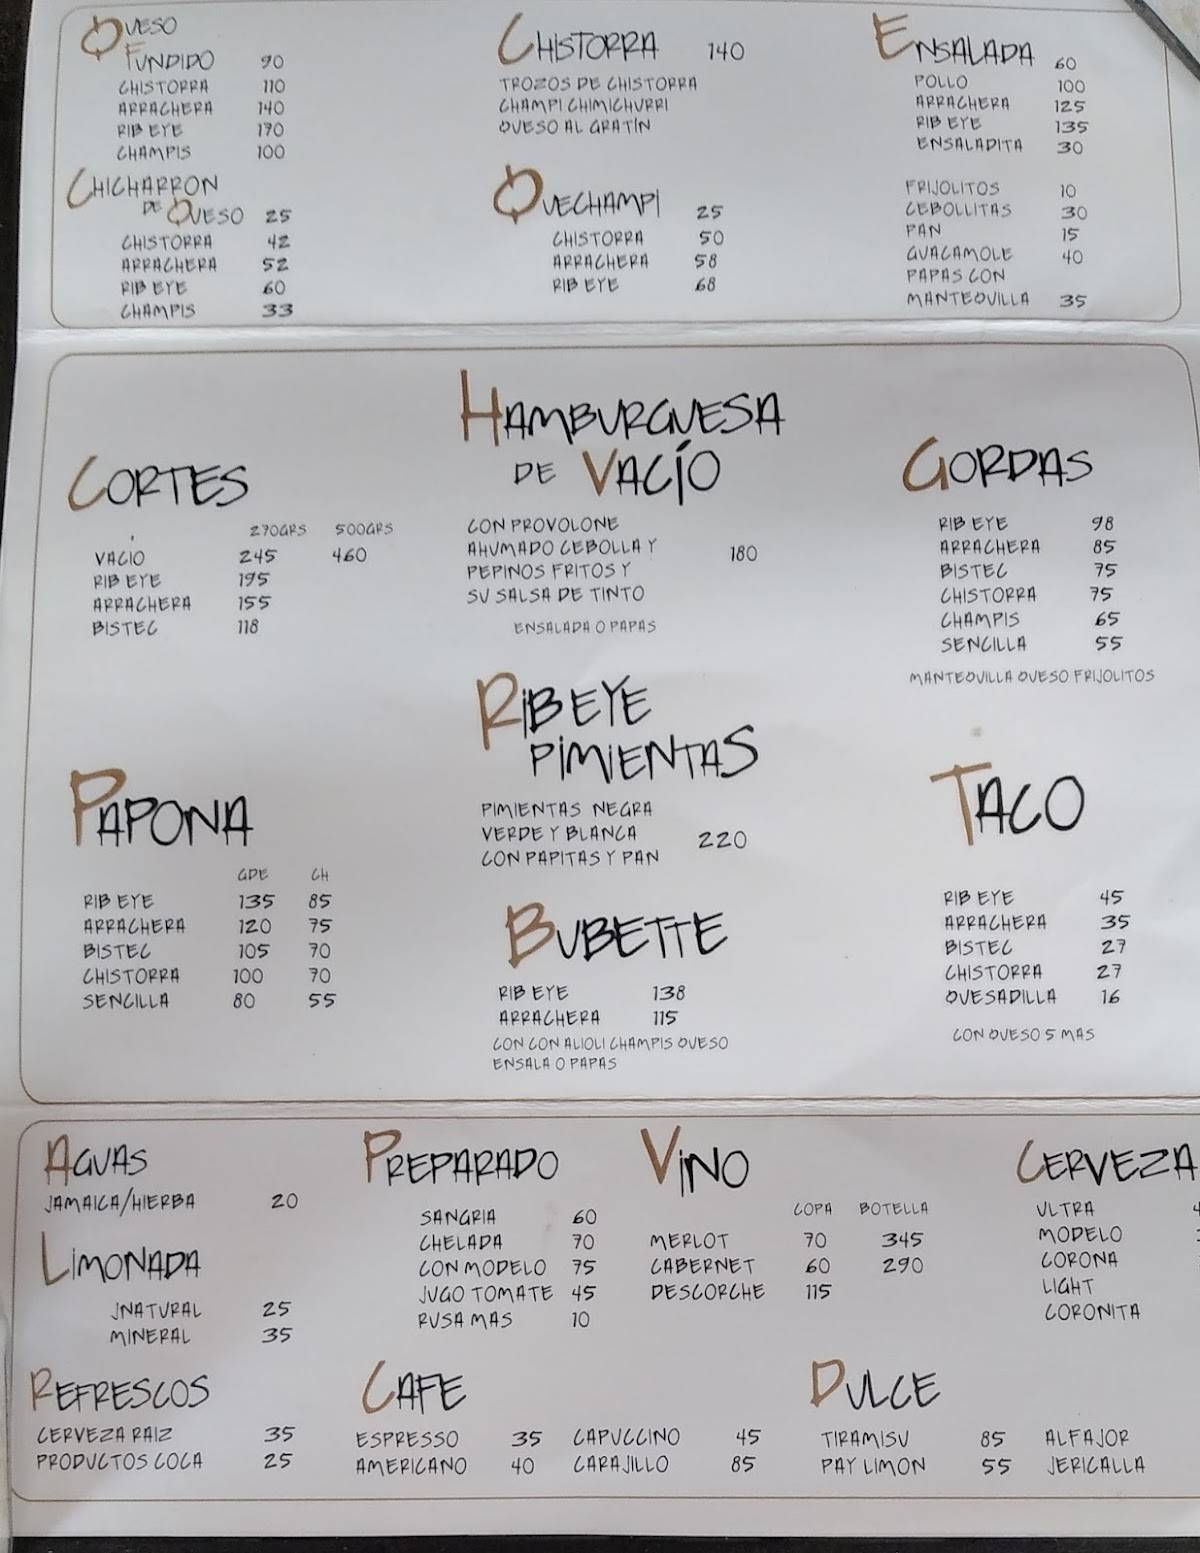 QUESO
FUNDIDO 90
CHISTORRA 110
ARRACHERA 140
RIB EYE 170
CHAMPIS 100
CHICHARRON
DE QUESO 25
CHISTORRA 42
ARRACHERA 52
RIB EYE 60
CHAMPIS 33
CHISTORRA 140
TROZOS DE CHISTORRA
CHAMPI CHIMICHURRI
QUESO AL GRATIN
QUECHAMPI 25
CHISTORRA 50
ARRACHERA 58
RIB EYE 68
ENSALADA 60
POLLO 100
ARRACHERA 125
RIB EYE 135
ENSALADITA 30
FRIJOLITOS 10
CEBOLLITAS 30
PAN 15
GUACAMOLE 40
PAPAS CON
MANTEQUILLA 35
CORTES
270GRS 500GRS
VACIO 245 460
RIB EYE 195
ARRACHERA 155
BISTEC 118
HAMBURGUESA
DE VACÍO
CON PROVOLONE
AHUMADO CEBOLLA Y 180
PEPINOS FRITOS Y
SU SALSA DE TINTO
ENSALADA O PAPAS
GORDAS
RIB EYE 98
ARRACHERA 85
BISTEC 75
CHISTORRA 75
CHAMPIS 65
SENCILLA 55
MANTEQUILLA QUESO FRIJOLITOS
PAPONA
GDE CH
RIB EYE 135 85
ARRACHERA 120 75
BISTEC 105 70
CHISTORRA 100 70
SENCILLA 80 55
RIB EYE
PIMIENTAS
PIMIENTAS NEGRA
VERDE Y BLANCA 220
CON PAPITAS Y PAN
BUBETTE
RIB EYE 138
ARRACHERA 115
CON CON ALIOLI CHAMPIS QUESO
ENSALA O PAPAS
TACO
RIB EYE 45
ARRACHERA 35
BISTEC 27
CHISTORRA 27
QUESADILLA 16
CON QUESO 5 MAS
AGUAS
JAMAICA/HIERBA 20
LIMONADA
JNATURAL 25
MINERAL 35
PREPARADO
SANGRIA 60
CHELADA 70
CON MODELO 75
JUGO TOMATE 45
RUSA MAS 10
VINO
COPA BOTELLA
MERLOT 70 345
CABERNET 60 290
DESCORCHE 115
CERVEZA
ULTRA
MODELO
CORONA
LIGHT
CORONITA
REFRESCOS
CERVEZA RAIZ 35
PRODUCTOS COCA 25
CAFE
ESPRESSO 35 CAPUCCINO 45
AMERICANO 40 CARAJILLO 85
DULCE
TIRAMISU 85 ALFAJOR
PAY LIMON 55 JERICALLA